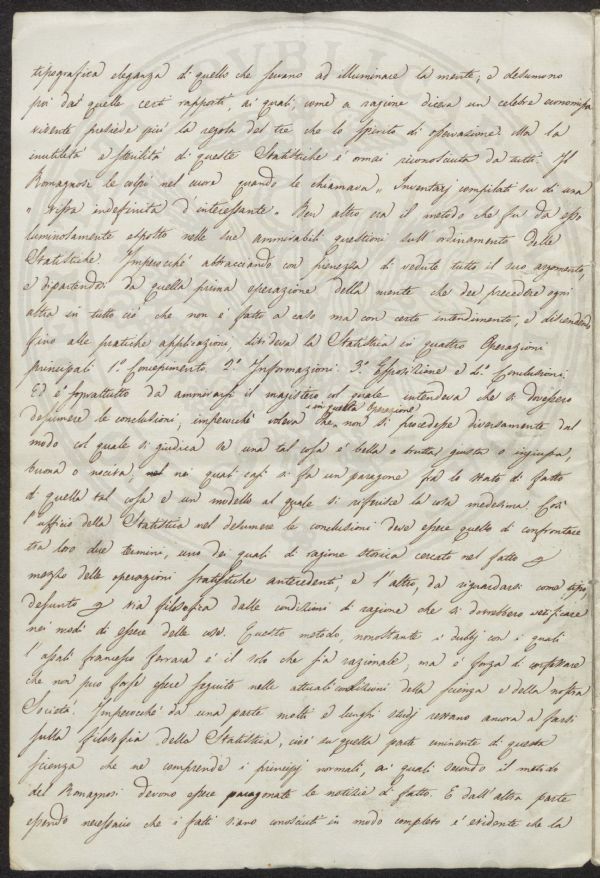 tipografica eleganza di quello che servano ad illuminare la mente; e desumono
poi da quelle certi rapporti, ai quali, come a ragione diceva un celebre economista
vivente presiede più la regola del tre che lo spirito di osservazione. Ma la
inutilità e sterilità di queste Statistiche è ormai riconosciuta da tutti. Il
Romagnosi le colpì nel cuore quando le chiamava „ Inventarj compilati su di una
„ cifra indefinita d'interessante „ Ben altro era il metodo che fu da esso
luminosamente esposto nelle sue ammirabili questioni sull'ordinamento delle
Statistiche. Imperocché abbracciando con pienezza di vedute tutto il suo argomento,
e dipartendosi da quella prima operazione della mente che dee precedere ogni
altra in tutto ciò che non è fatto a caso ma con certo intendimento, e discendendo
fino alle pratiche applicazioni, divideva la Statistica in quattro Operazioni
principali 1.º Concepimento 2.º Informazioni 3.º Esposizione e 4.º Conclusioni.
Ed è soprattutto da ammirarsi il magistero col quale intendeva che si dovessero
desumere le conclusioni, imperocchè voleva che, in questa Operazione, non si procedesse diversamente dal
modo col quale si giudica se una tal cosa è bella o brutta giusta o ingiusta,
buona o nociva, nei quali casi si fa un paragone fra lo stato di fatto
di quella tal cosa e un modello al quale si riferisce la cosa medesima. Così
l'ufficio della Statistica nel desumere le conclusioni deve essere quello di confrontare
tra loro due termini, uno dei quali di ragione storica cercato nel fatto
mezzo delle operazioni statistiche antecedenti, e l'altro, da riguardarsi come tipo
desunto via filosofica dalle condizioni di ragione che si dovrebbero verificare
nei modi di essere delle cose. Questo metodo, nonostante i dubbj con i quali
l'assalì Francesco Ferrara è il solo che sia razionale, ma è forza di confessare
che non può forse essere seguito nelle attuali condizioni della scienza e della nostra
Società. Imperocché da una parte molti e lunghi studj restano ancora a farsi
sulla filosofia della Statistica, cioè su questa parte eminente di questa
scienza che ne comprende i principj normali, ai quali secondo il metodo
del Romagnosi devono essere paragonate le notizie di fatto. E dall'altra parte
essendo necessario che i fatti siano conosciuti in modo completo è evidente che la